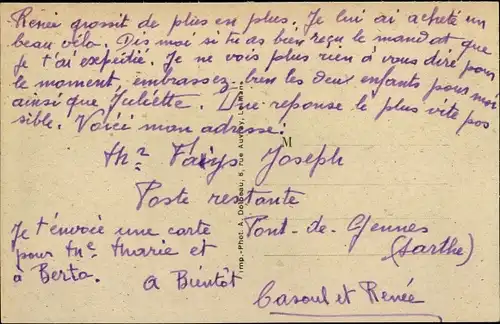 Renée grossit de plus en plus. Je lui ai acheté un
beau vélo. Dis moi si tu as bien reçu le mandat que
je t'ai expédié. Je ne vois plus rien à vous dire pour
le moment, embrassez bien les deux enfants pour moi
ainsi que Juliette. Une réponse le plus vite pos
sible. Voici mon adresse:
M
Mr Joseph
Poste restante
Pont-de-Gennes
(Sarthe)
Je t'envoie une carte
pour Me Marie et
à Berta.
A Bientôt
Casoul et Renée
Imp.-Phot. A. Dolbeau, 8, rue Auvray, Le Mans